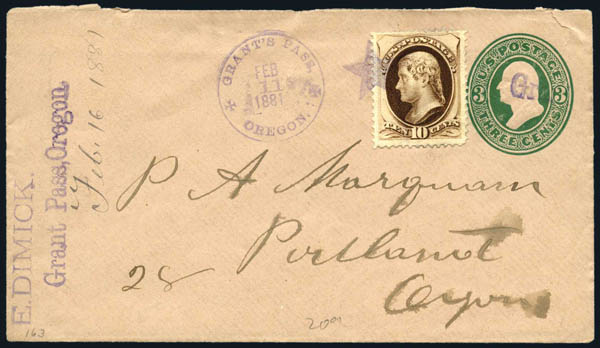 GRANT'S PASS,
FEB
11
1881
OREGON.
U.S. POSTAGE
TEN 10 CENTS
U.S. POSTAGE
3 3
THREE CENTS
Gr
E. DIMICK.
Grant Pass, Oregon,
Feb. 16 1881
P A Marquam
Portland
28 Ogon
163
209